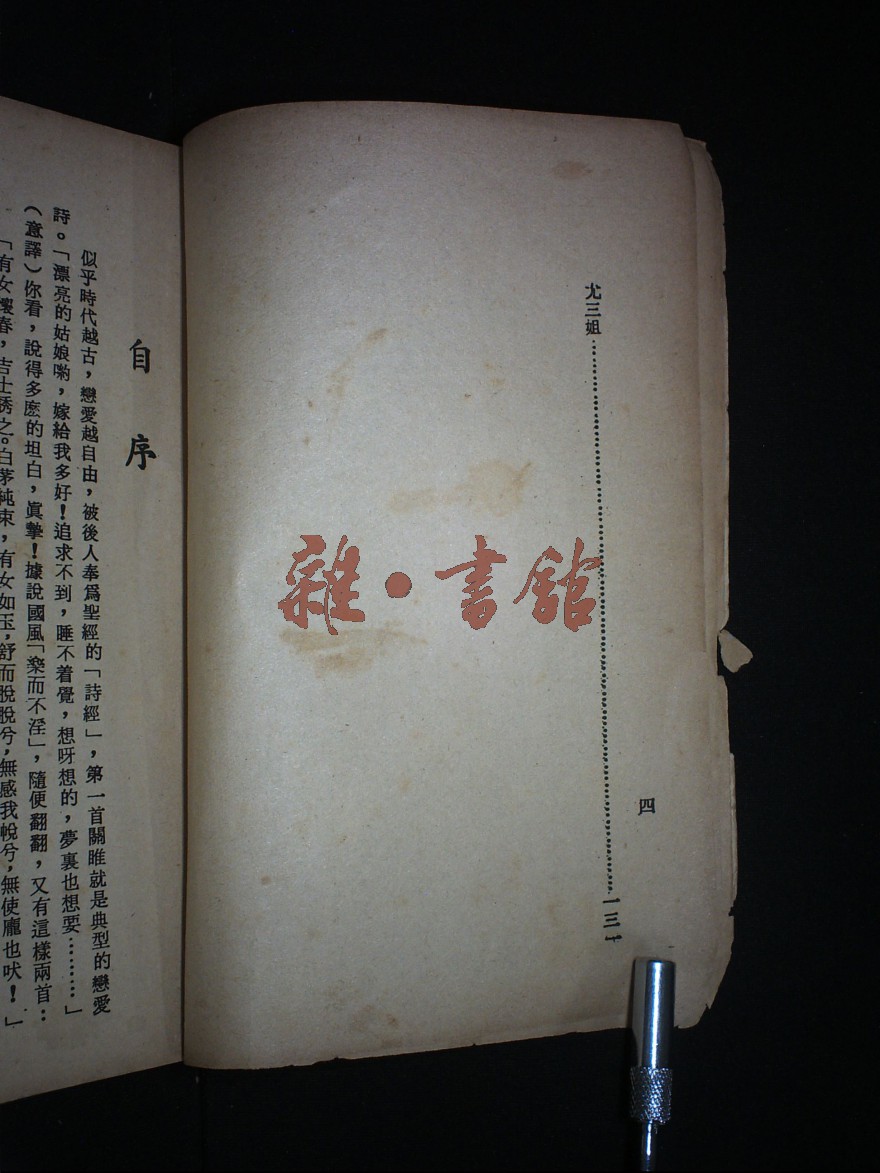 尤三姐……………………一三一
四
自序
似乎時代越古，戀愛越自由，被後人奉爲聖經的「詩經」，第一首關睢就是典型的戀愛
詩。「漂亮的姑娘喲，嫁給我多好！追求不到，睡不着覺，想呀想的，夢裏也想要………」
（意譯）你看，說得多麽的坦白，眞摯！據說國風「樂而不淫」，隨便翻翻，又有這樣兩首：
「有女懷春，吉士誘之。白茅純束，有女如玉，舒而脫脫兮，無感我帨兮，無使龐也吠！」
雜·書館